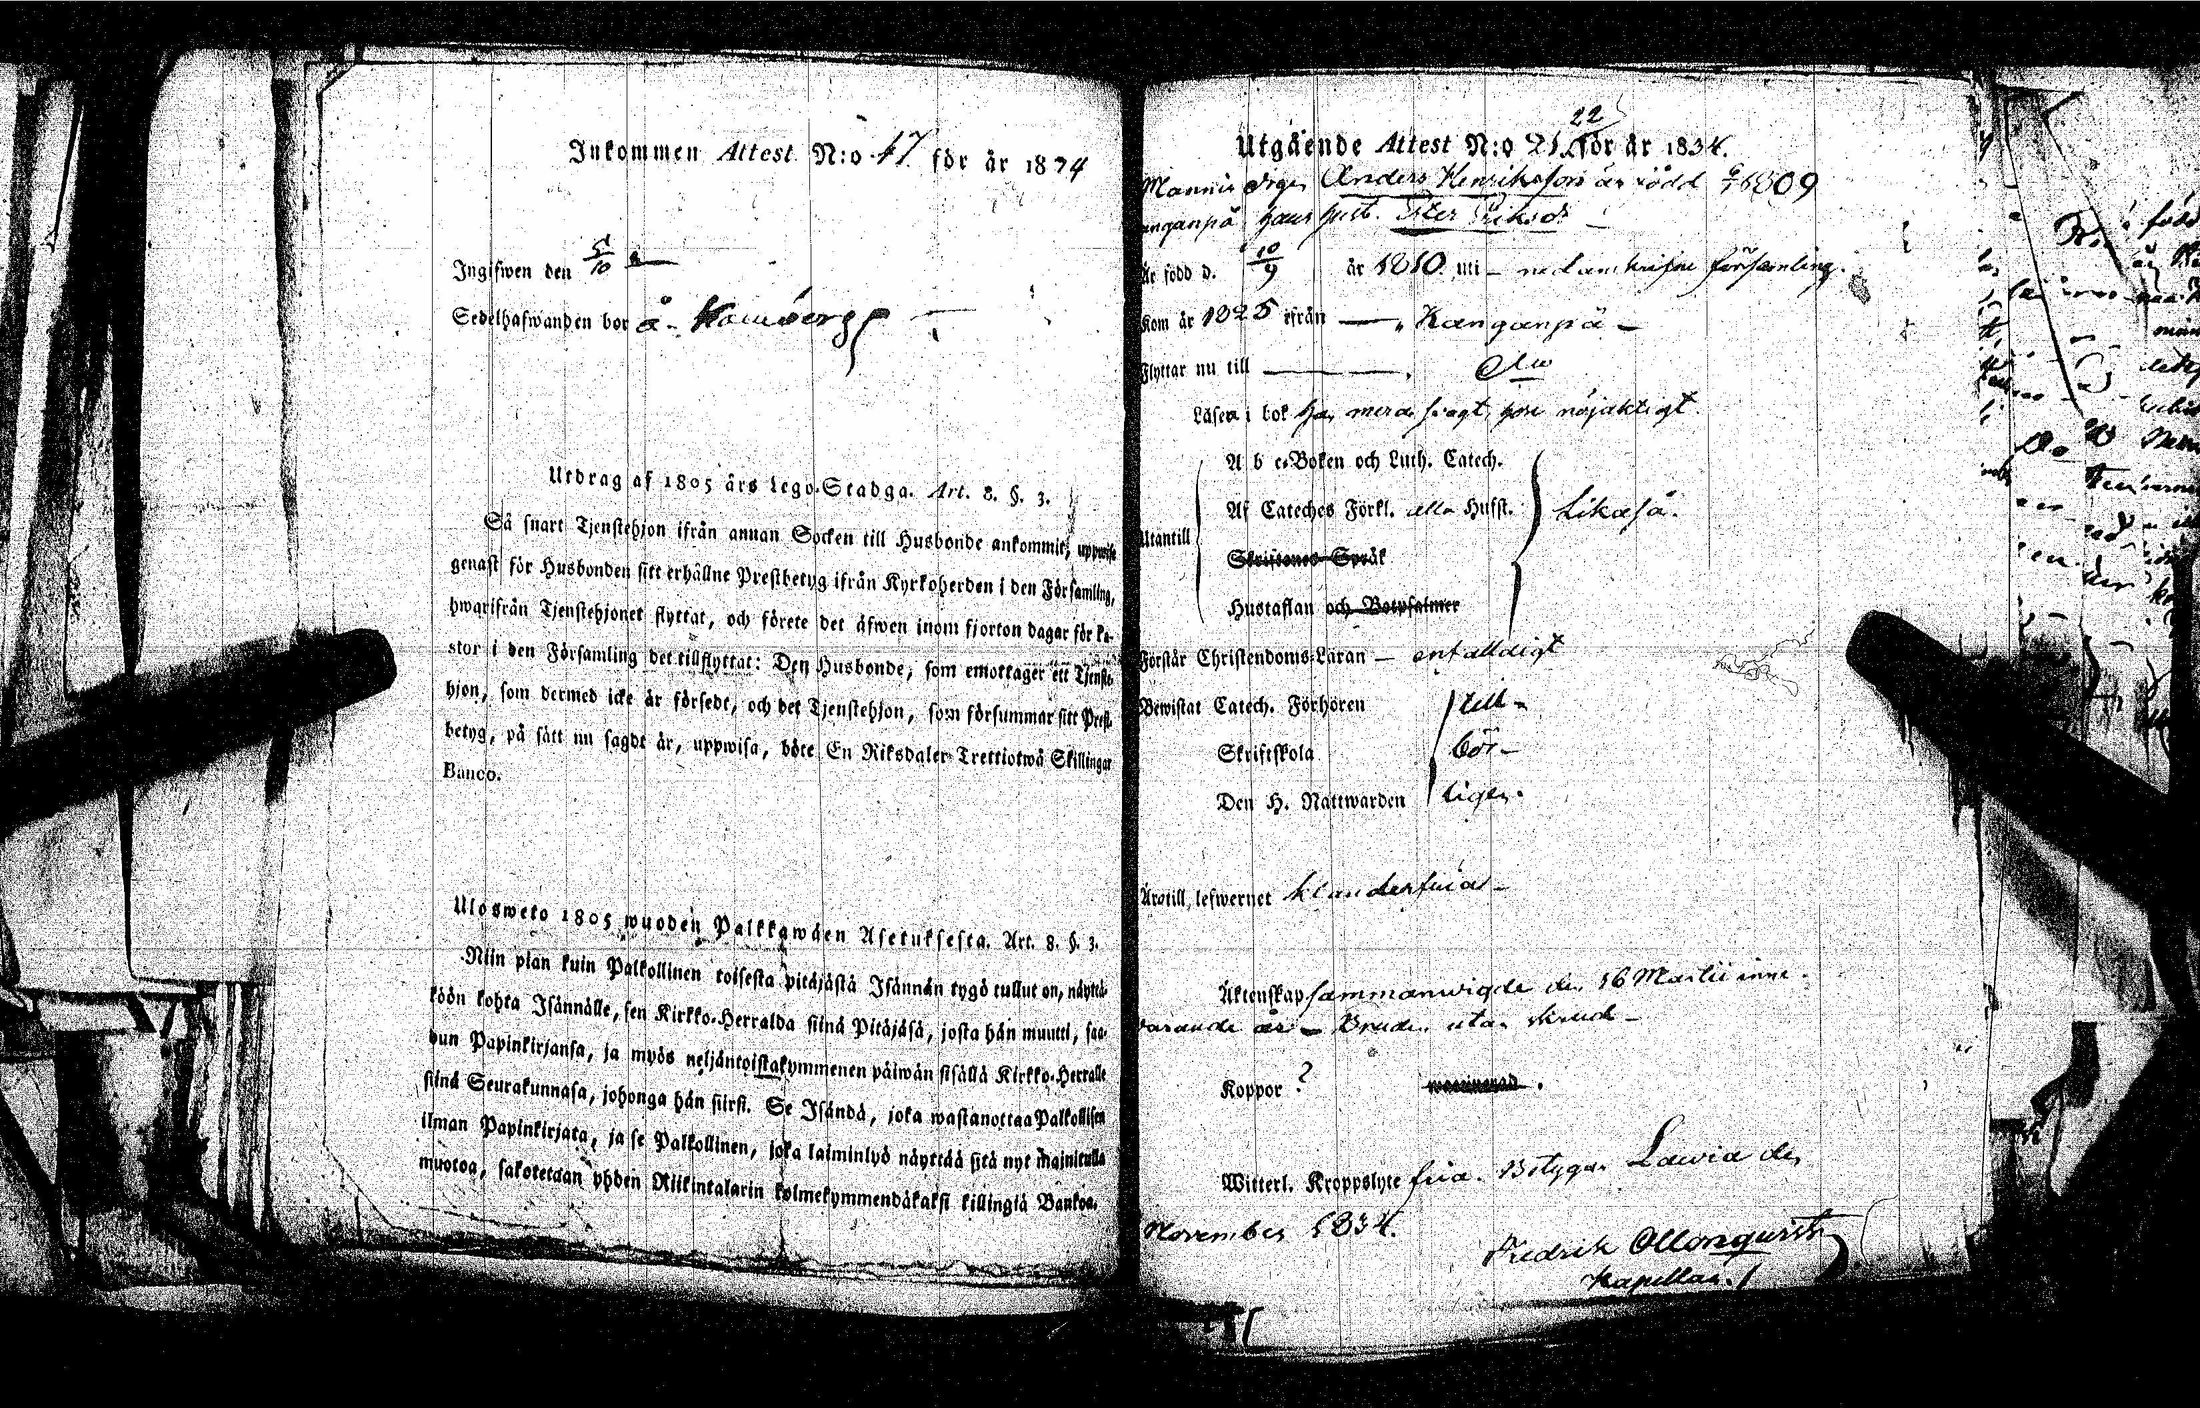 Inkommen Attest N:o 47 för år 1874
Ingifwen den 5/10
Sedelhafwanden bor å
Utdrag af 1805 års Lego-Stadga. Art. 8. §. 3.
Så snart Tjenstehjon ifrån annan Socken till Husbonde ankommit, uppwise
genast för Husbonden sitt erhållne Prestbetyg ifrån Kyrkoherden i den Församling,
hwarifrån Tjenstehjonet flyttat, och förete det äfwen inom fjorton dagar för Pa-
stor i den Församling det tillflyttat: Den Husbonde, som emottager ett Tjenste-
hjon, som dermed icke är försedt, och det Tjenstehjon, som försummar sitt Prest-
betyg, på sätt nu sagdt är, uppwisa, böte En Riksdaler Trettiotwå Skillingar
Banco.
Ulosweto 1805 wuoden Palkkawäen Asetuksesta. Art. 8. §. 3.
Niin pian kuin Palkollinen toisesta pitäjästä Isännän tygö tullut on, näyttä-
köön kohta Isännälle, sen Kirkko-Herralda siinä Pitäjäsä, josta hän muutti, saa-
dun Papinkirjansa, ja myös neljäntoistakymmenen päiwän sisällä Kirkko-Herralle
siinä Seurakunnasa, johonga hän siirsi. Se Isändä, joka wastanottaa Palkollisen
ilman Papinkirjata, ja se Palkollinen, joka laiminlyö näyttää sitä nyt mainitulla
muotoa, sakotetaan yhden Riikintalarin kolmekymmendäkaksi killingiä Bankoa.
22
Utgående Attest N:o 21 för år 1834.
Anders Henriksson är född 1809
hans hust. Ester Eriksdr
Är född d. 10/9 år 1810 uti nedanskrifne församling.
Kom år 1825 ifrån — Kanganpä —
Flyttar nu till —
Läser i bok han mera svagt, hon nöjaktigt.
A b c-Boken och Luth. Catech.
Utantill Af Cateches Förkl. alla Hufst. Likaså.
Skriftenes Språk
Hustaflan och Botpsalmer
Förstår Christendoms-Läran — enfalldigt
Bewistat Catech. Förhören till-
Skriftskola bör-
Den H. Nattwarden ligen.
Är till lefwernet klanderfria —
Äktenskap sammanwigde den 16 Martii inne-
warande år — Bruden utan skrud —
Koppor ?
Witterl. Kroppslyte fria. Betygar Lawia den
November 1834.
Fredrik Ollonquist
Kapellan.